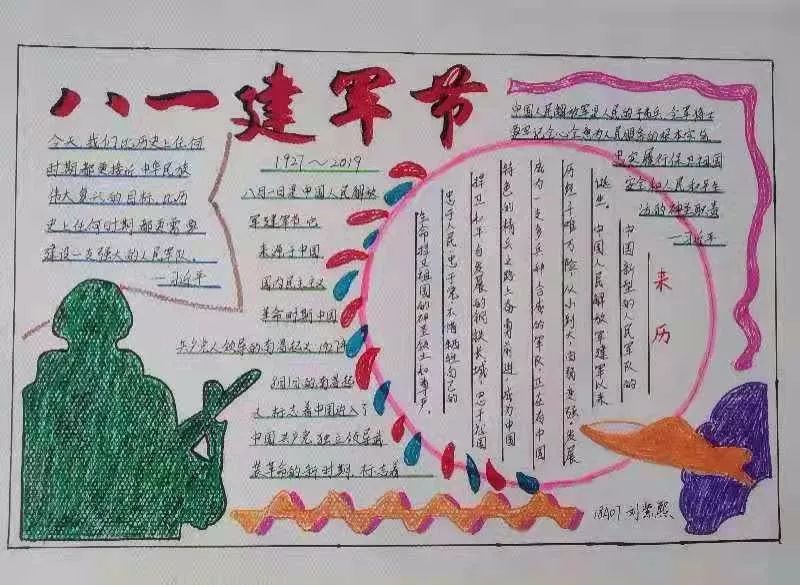 八一建军节
今天,我们比历史上任何
时期都更接近中华民族
伟大复兴的目标,比历
史上任何时期都更需要
建设一支强大的人民军队。
—习近平
1927～2019
八月一日是中国人民解放
军建军节,
来源于中国
国内民主主义
革命时期中国
共产党人领导的南昌起义1927年
8月1日的南昌起
义,标志着中国进入了
中国共产党独立领导武
装革命的新时期,标志着
中国人民解放军是人民的子弟兵,全军将士
要牢记全心全意为人民服务的根本宗旨
忠实履行保卫祖国
安全和人民和平生
活的神圣职责
—习近平
来历
中国新型的人民军队的
诞生。中国人民解放军建军以来
历经千难万险,从小到大,由弱变强,发展
成为一支多兵种合成的军队,正在有中国
特色的精兵之路上奋勇前进,成为中国
捍卫和平与发展的钢铁长城,忠于祖国
忠于人民,忠于党,不惜牺牲自己的
生命捍卫祖国的神圣领土和尊严。
18A07 刘紫熙